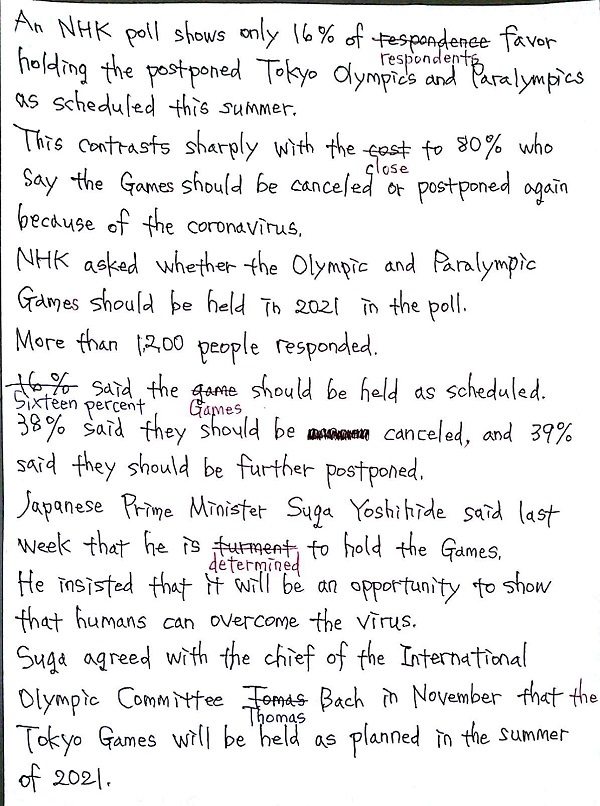 An NHK poll shows only 16% of respondence favor
respondents
holding the postponed Tokyo Olympics and Paralympics
as scheduled this summer.
This contrasts sharply with the cost to 80% who
close
say the Games should be canceled or postponed again
because of the coronavirus.
NHK asked whether the Olympic and Paralympic
Games should be held in 2021 in the poll.
More than 1,200 people responded.
16% said the game should be held as scheduled.
Sixteen percent Games
38% said they should be canceled, and 39%
said they should be further postponed.
Japanese Prime Minister Suga Yoshihide said last
week that he is turment to hold the Games.
determined
He insisted that it will be an opportunity to show
that humans can overcome the virus.
Suga agreed with the chief of the International
Olympic Committee Tomas Bach in November that the
Thomas
Tokyo Games will be held as planned in the summer
of 2021.